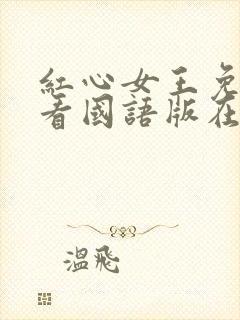 紅心女王免
看國語版在
溫飛